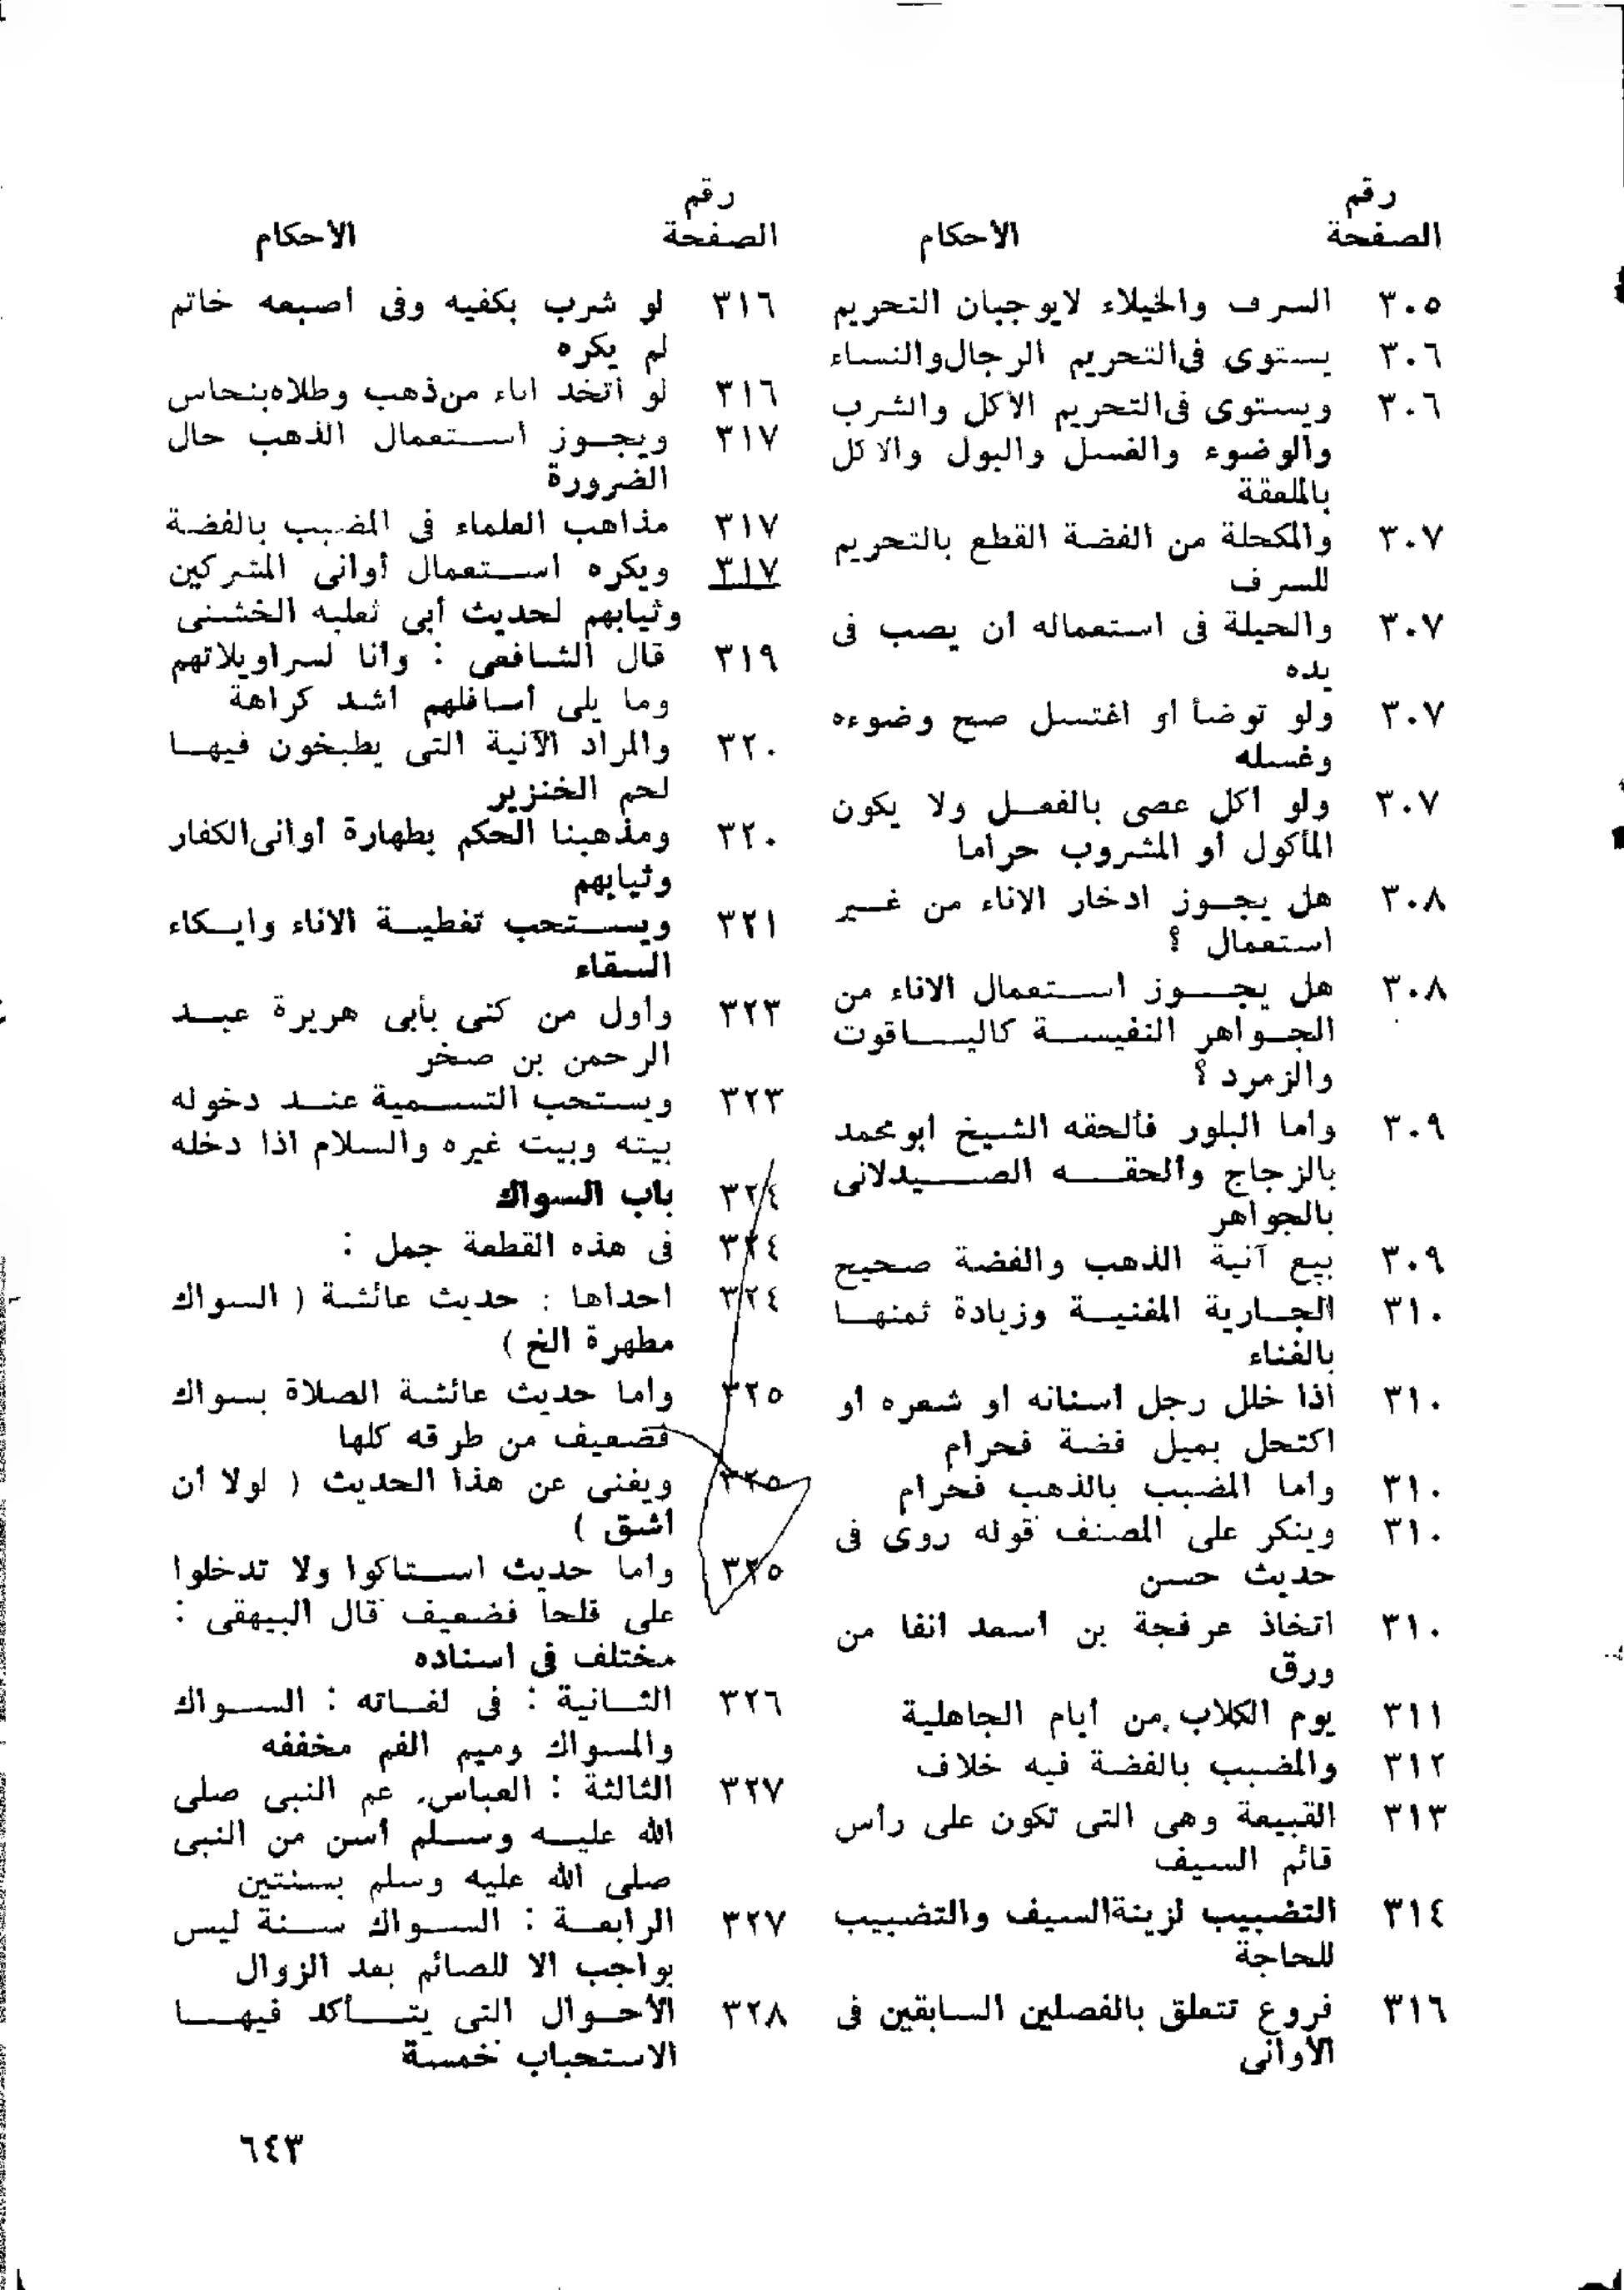 رقم
الصفحة الأحكام
٣٠٥ السرف والخيلاء لايوجبان التحريم
٣٠٦ يستوى فى التحريم الرجال والنساء
٣٠٦ ويستوى فى التحريم الأكل والشرب
والوضوء والغسل والبول والاكل
بالملعقة
٣٠٧ والمكحلة من الفضة القطع بالتحريم
للسرف
٣٠٧ والحيلة فى استعماله أن يصب فى
يده
٣٠٧ ولو توضأ أو اغتسل صح وضوءه
وغسله
٣٠٧ ولو أكل عصى بالفعل ولا يكون
المأكول أو المشروب حراما
٣٠٨ هل يجوز ادخار الاناء من غير
استعمال ؟
٣٠٨ هل يجوز استعمال الاناء من
الجواهر النفيسة كالياقوت
والزمرد ؟
٣٠٩ وأما البلور فألحقه الشيخ ابو محمد
بالزجاج وألحقه الصيدلانى
بالجواهر
٣٠٩ بيع آنية الذهب والفضة صحيح
٣١٠ الجارية المغنية وزيادة ثمنها
بالغناء
٣١٠ اذا خلل رجل اسنانه او شعره او
اكتحل بميل فضة فحرام
٣١٠ وأما المضبب بالذهب فحرام
٣١٠ وينكر على المصنف قوله روى فى
حديث حسن
٣١٠ اتخاذ عرفجة بن اسعد انفا من
ورق
٣١١ يوم الكلاب من أيام الجاهلية
٣١٢ والمضبب بالفضة فيه خلاف
٣١٣ القبيعة وهى التى تكون على رأس
قائم السيف
٣١٤ التضبيب لزينة السيف والتضبيب
للحاجة
٣١٦ فروع تتعلق بالفصلين السابقين فى
الأوانى
رقم
الصفحة الأحكام
٣١٦ لو شرب بكفيه وفى اصبعه خاتم
لم يكره
٣١٦ لو أتخد اناء من ذهب وطلاه بنحاس
٣١٧ ويجوز استعمال الذهب حال
الضرورة
٣١٧ مذاهب العلماء فى المضبب بالفضة
٣١٧ ويكره استعمال أوانى المشركين
وثيابهم لحديث أبى ثعلبه الخشنى
٣١٩ قال الشافعى : وأنا لسراويلاتهم
وما يلى أسافلهم أشد كراهة
٣٢٠ والمراد الآنية التى يطبخون فيها
لحم الخنزير
٣٢٠ ومذهبنا الحكم بطهارة أوانى الكفار
وثيابهم
٣٢١ ويستحب تغطية الاناء وايكاء
السقاء
٣٢٣ وأول من كنى بأبى هريرة عبد
الرحمن بن صخر
٣٢٣ ويستحب التسمية عند دخوله
بيته وبيت غيره والسلام اذا دخله
٣٢٤ باب السواك
٣٢٤ فى هذه القطعة جمل :
٣٢٤ احداها : حديث عائشة ( السواك
مطهرة الخ )
٣٢٥ وأما حديث عائشة الصلاة بسواك
فضعيف من طرقه كلها
٣٢٥ ويغنى عن هذا الحديث ( لولا أن
أشق )
٣٢٥ وأما حديث استاكوا ولا تدخلوا
على قلحا فضعيف قال البيهقى :
مختلف فى اسناده
٣٢٦ الثانية : فى لغاته : السواك
والمسواك وميم الفم مخففه
٣٢٧ الثالثة : العباس عم النبى صلى
الله عليه وسلم أسن من النبى
صلى الله عليه وسلم بسنتين
٣٢٧ الرابعة : السواك سنة ليس
بواجب الا للصائم بعد الزوال
٣٢٨ الأحوال التى يتأكد فيها
الاستحباب خمسة
٦٤٣